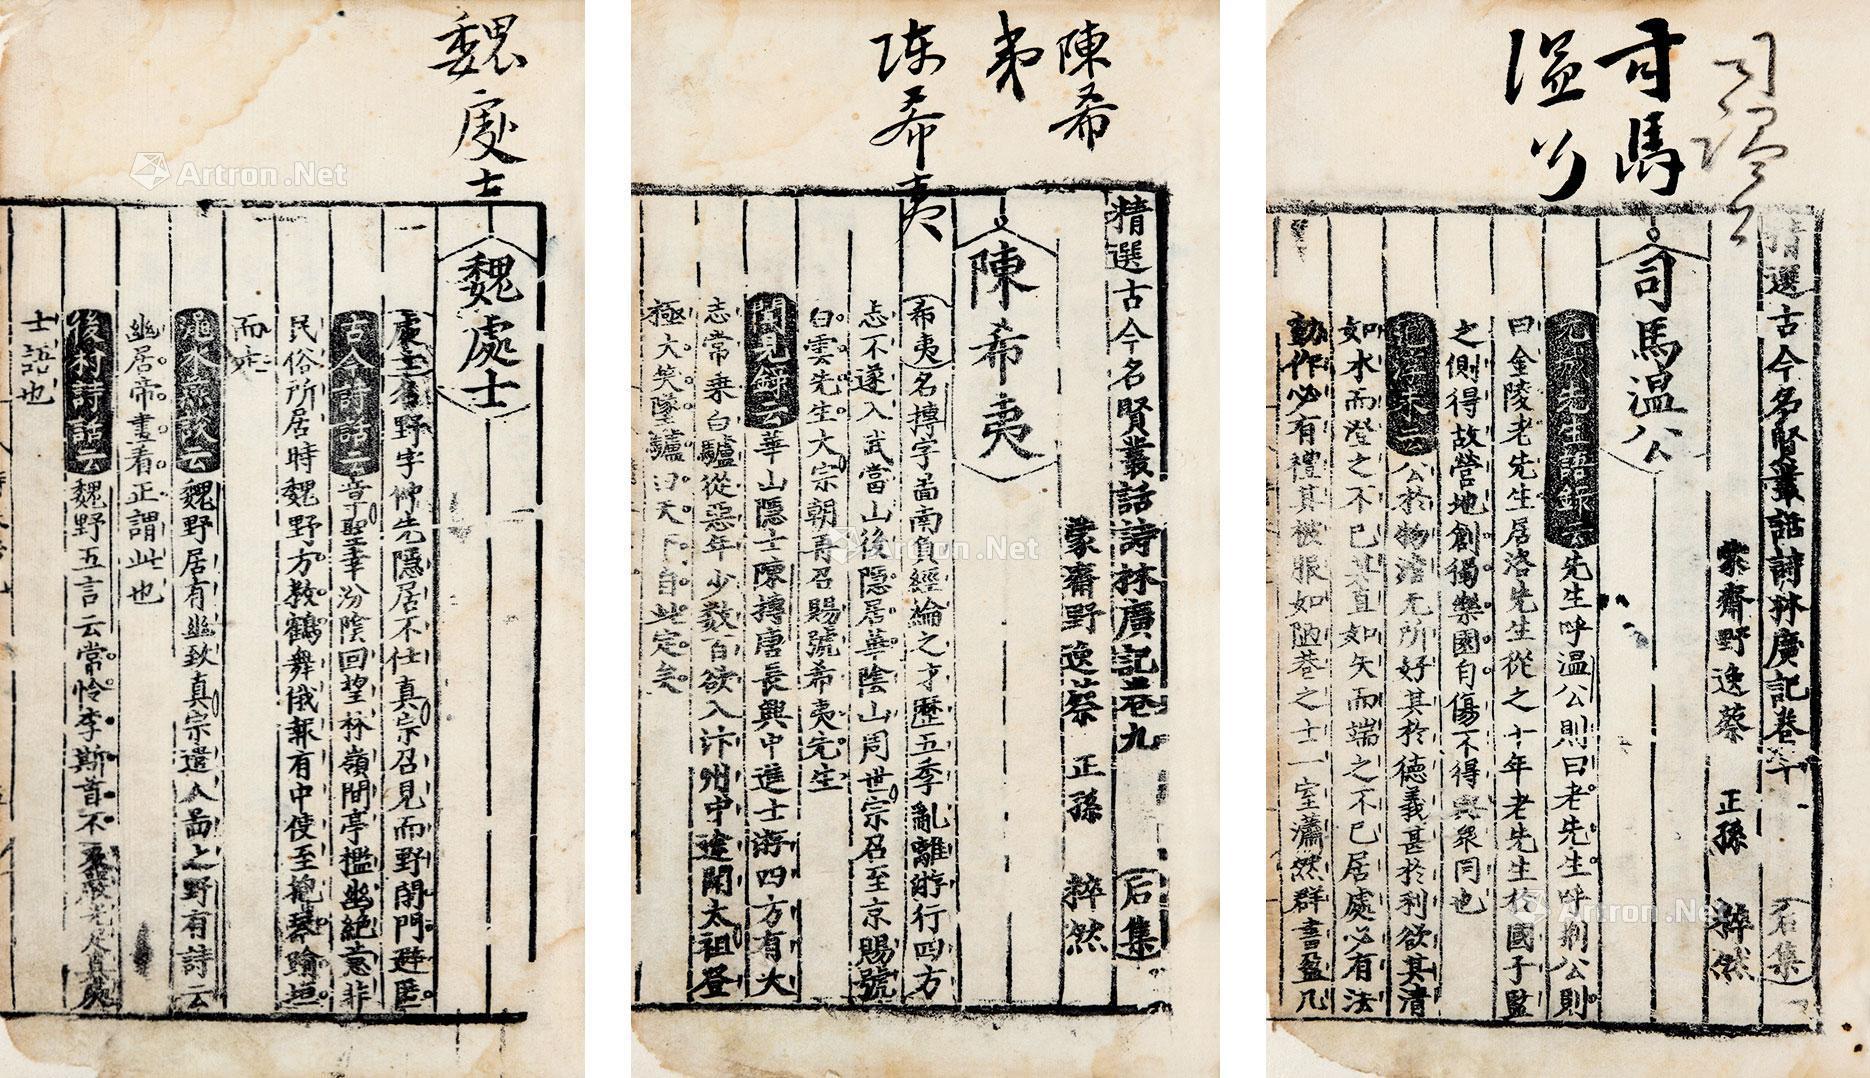 司馬
溫公
精選古今名賢叢話詩林廣記卷十 后集
蒙齋野逸蔡 正孫 粹然
司馬溫公
元城先生語錄云先生呼溫公則曰老先生呼荆公則
曰金陵老先生居洛先生從之十年老先生於國子監
之側得故營地創獨樂園自傷不得與衆同也
云公於物澹无所好其於德義甚於利欲其清
如水而澄之不已其直如矢而端之不已居處必有法
動作必有禮其被服如陋巷之士一室瀟然群書盈几
陳希
夷
陈希夷
精選古今名賢叢話詩林廣記卷九 后集
蒙齋野逸蔡 正孫 粹然
陳希夷
希夷名摶字啚南負經綸之才歷五季亂離游行四方
志不遂入武當山後隱居華陰山周世宗召至京賜號
白雲先生大宗朝再召賜號希夷先生
聞見錄云華山隱士陳摶唐長興中進士游四方有大
志常乘白驢從惡年少數百欲入汴州中途聞太祖登
極大笑墜驢曰天下自此定矣
魏處士
魏處士
處士名野字仲先隱居不仕真宗召見而野閉門避匿
古今詩話云章聖幸汾陰回望林嶺間亭檻幽絕意非
民俗所居時魏野方教鶴舞俄報有中使至抱琴踰垣
而走
澠水燕談云魏野居有幽致真宗遣人啚之野有詩云
幽居帝畫看正謂此也
後村詩話云魏野五言云常怜李斯首不
士語也
Artron.Net
Artron.Net
Artron.Net